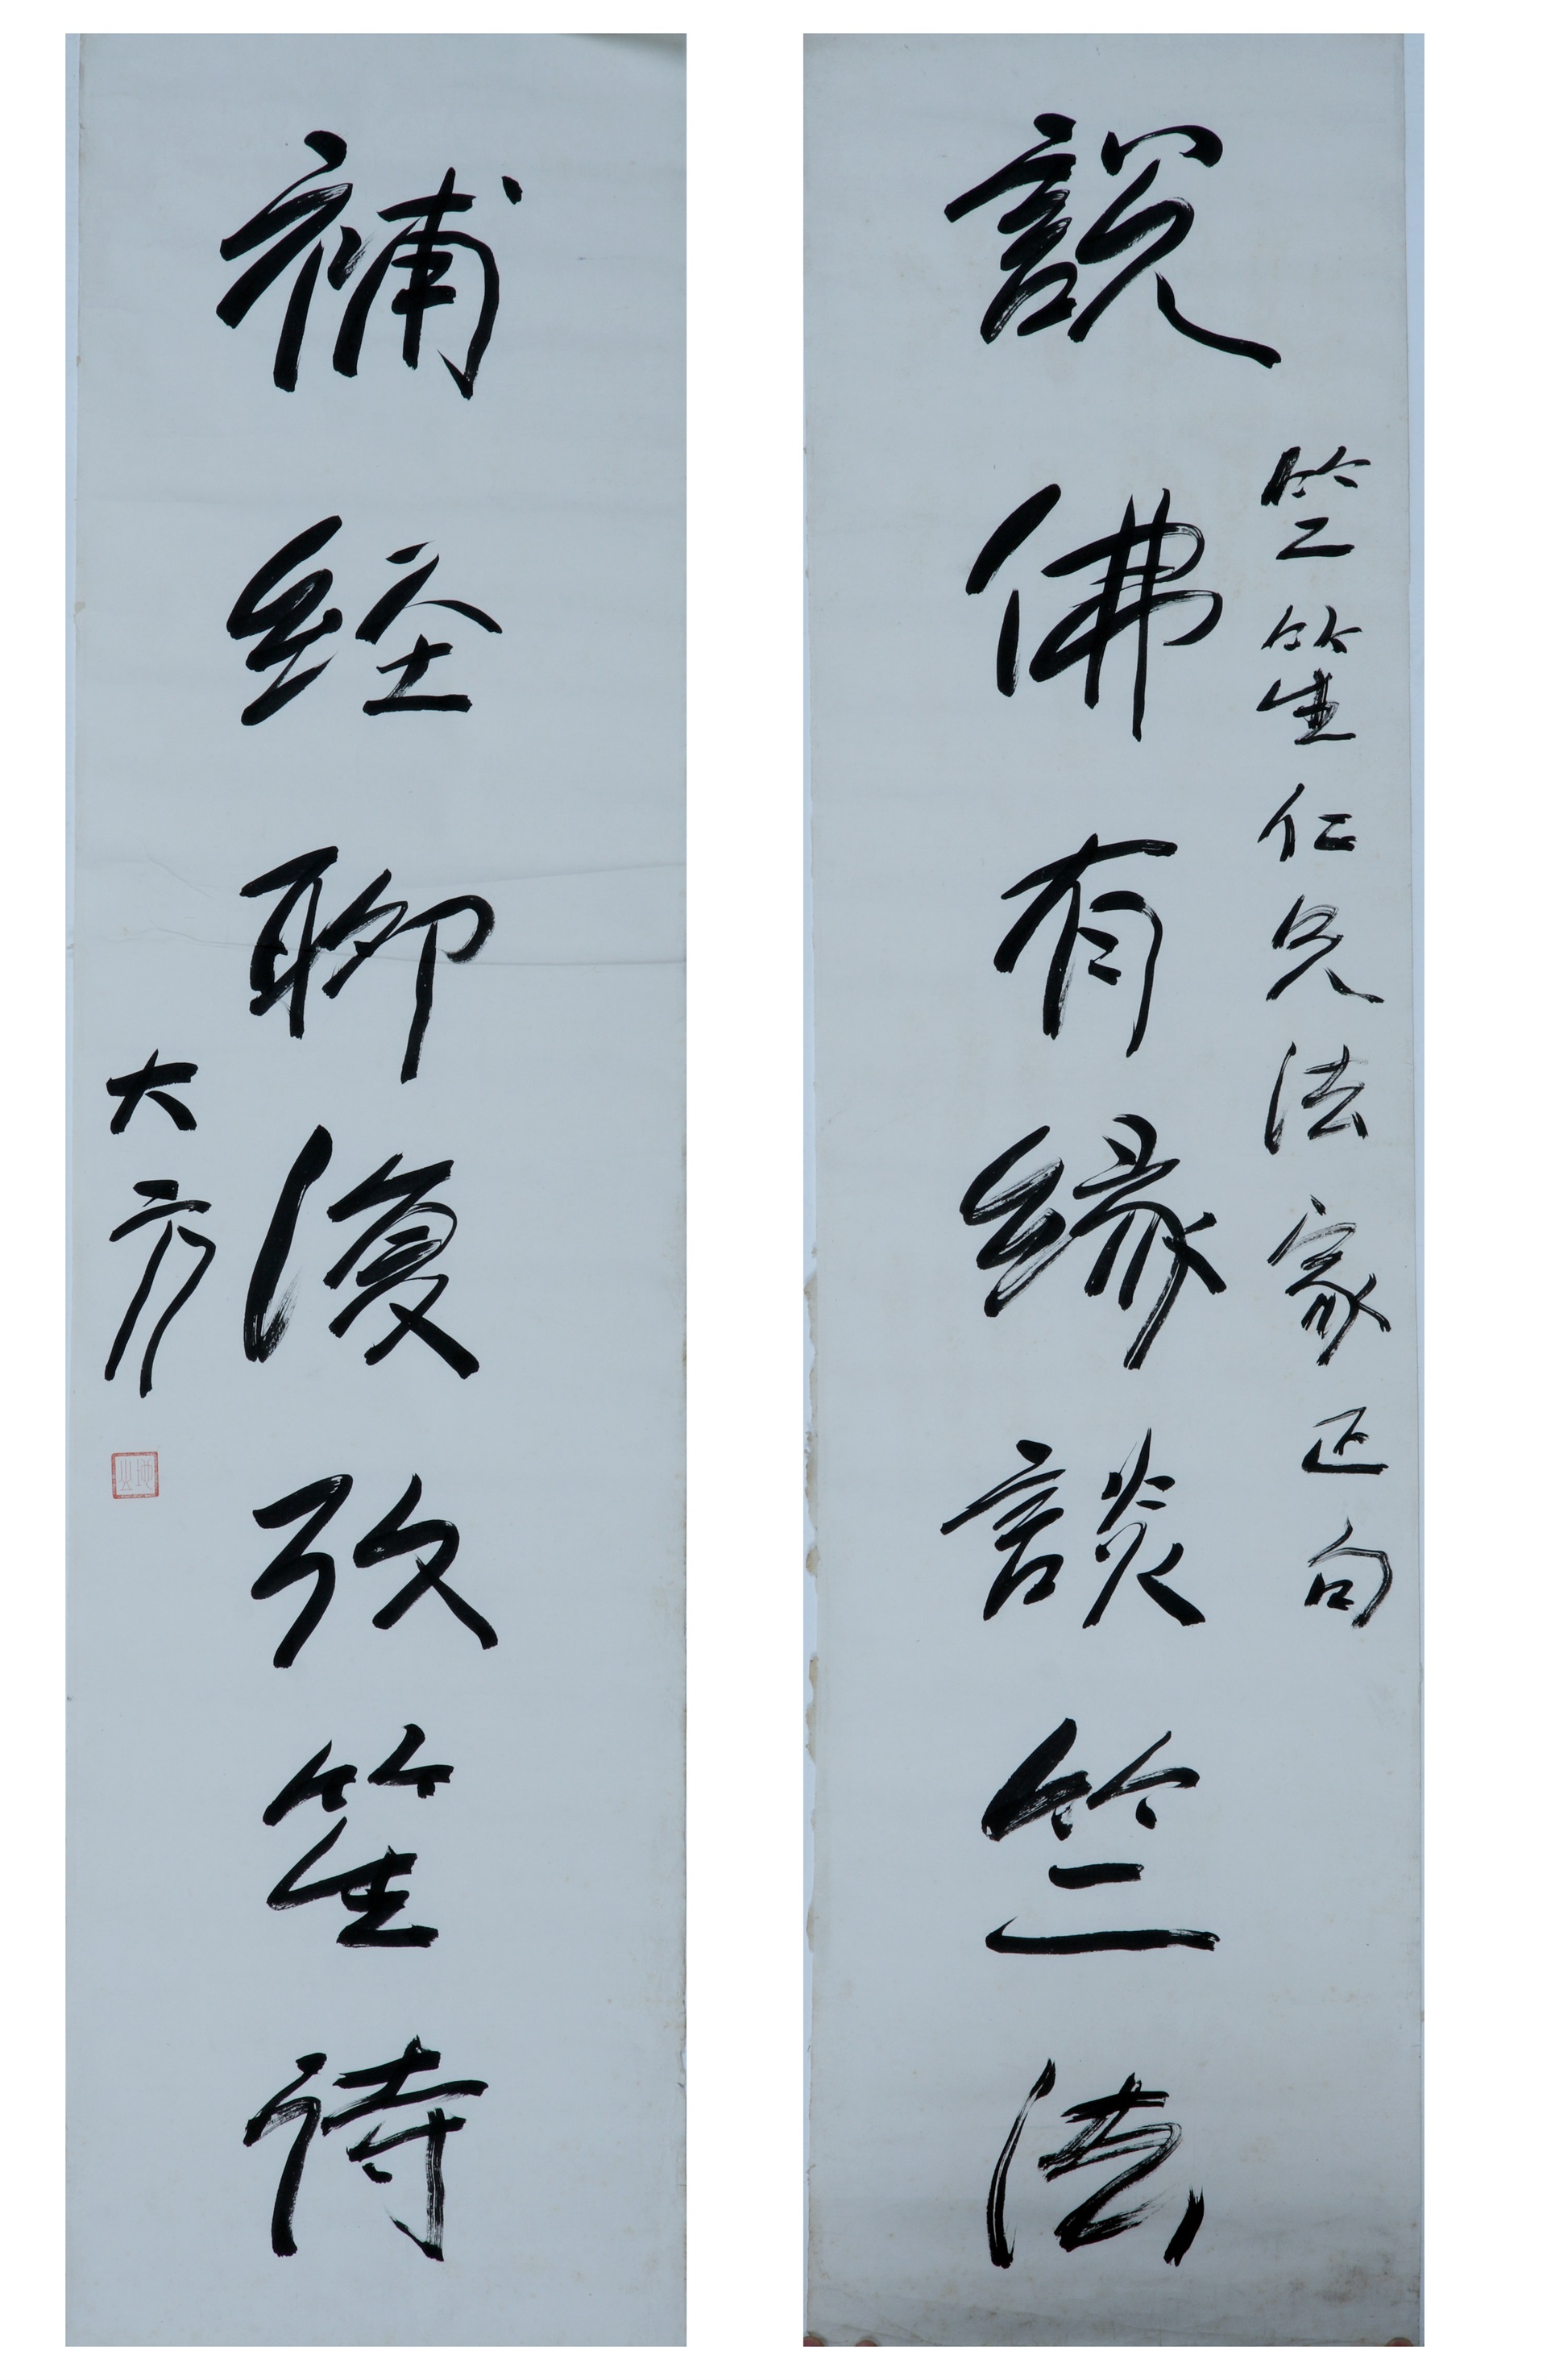 說佛有緣談竺法
竺笙仁兄法家正句
補經聊復攷笙詩
大方
地山